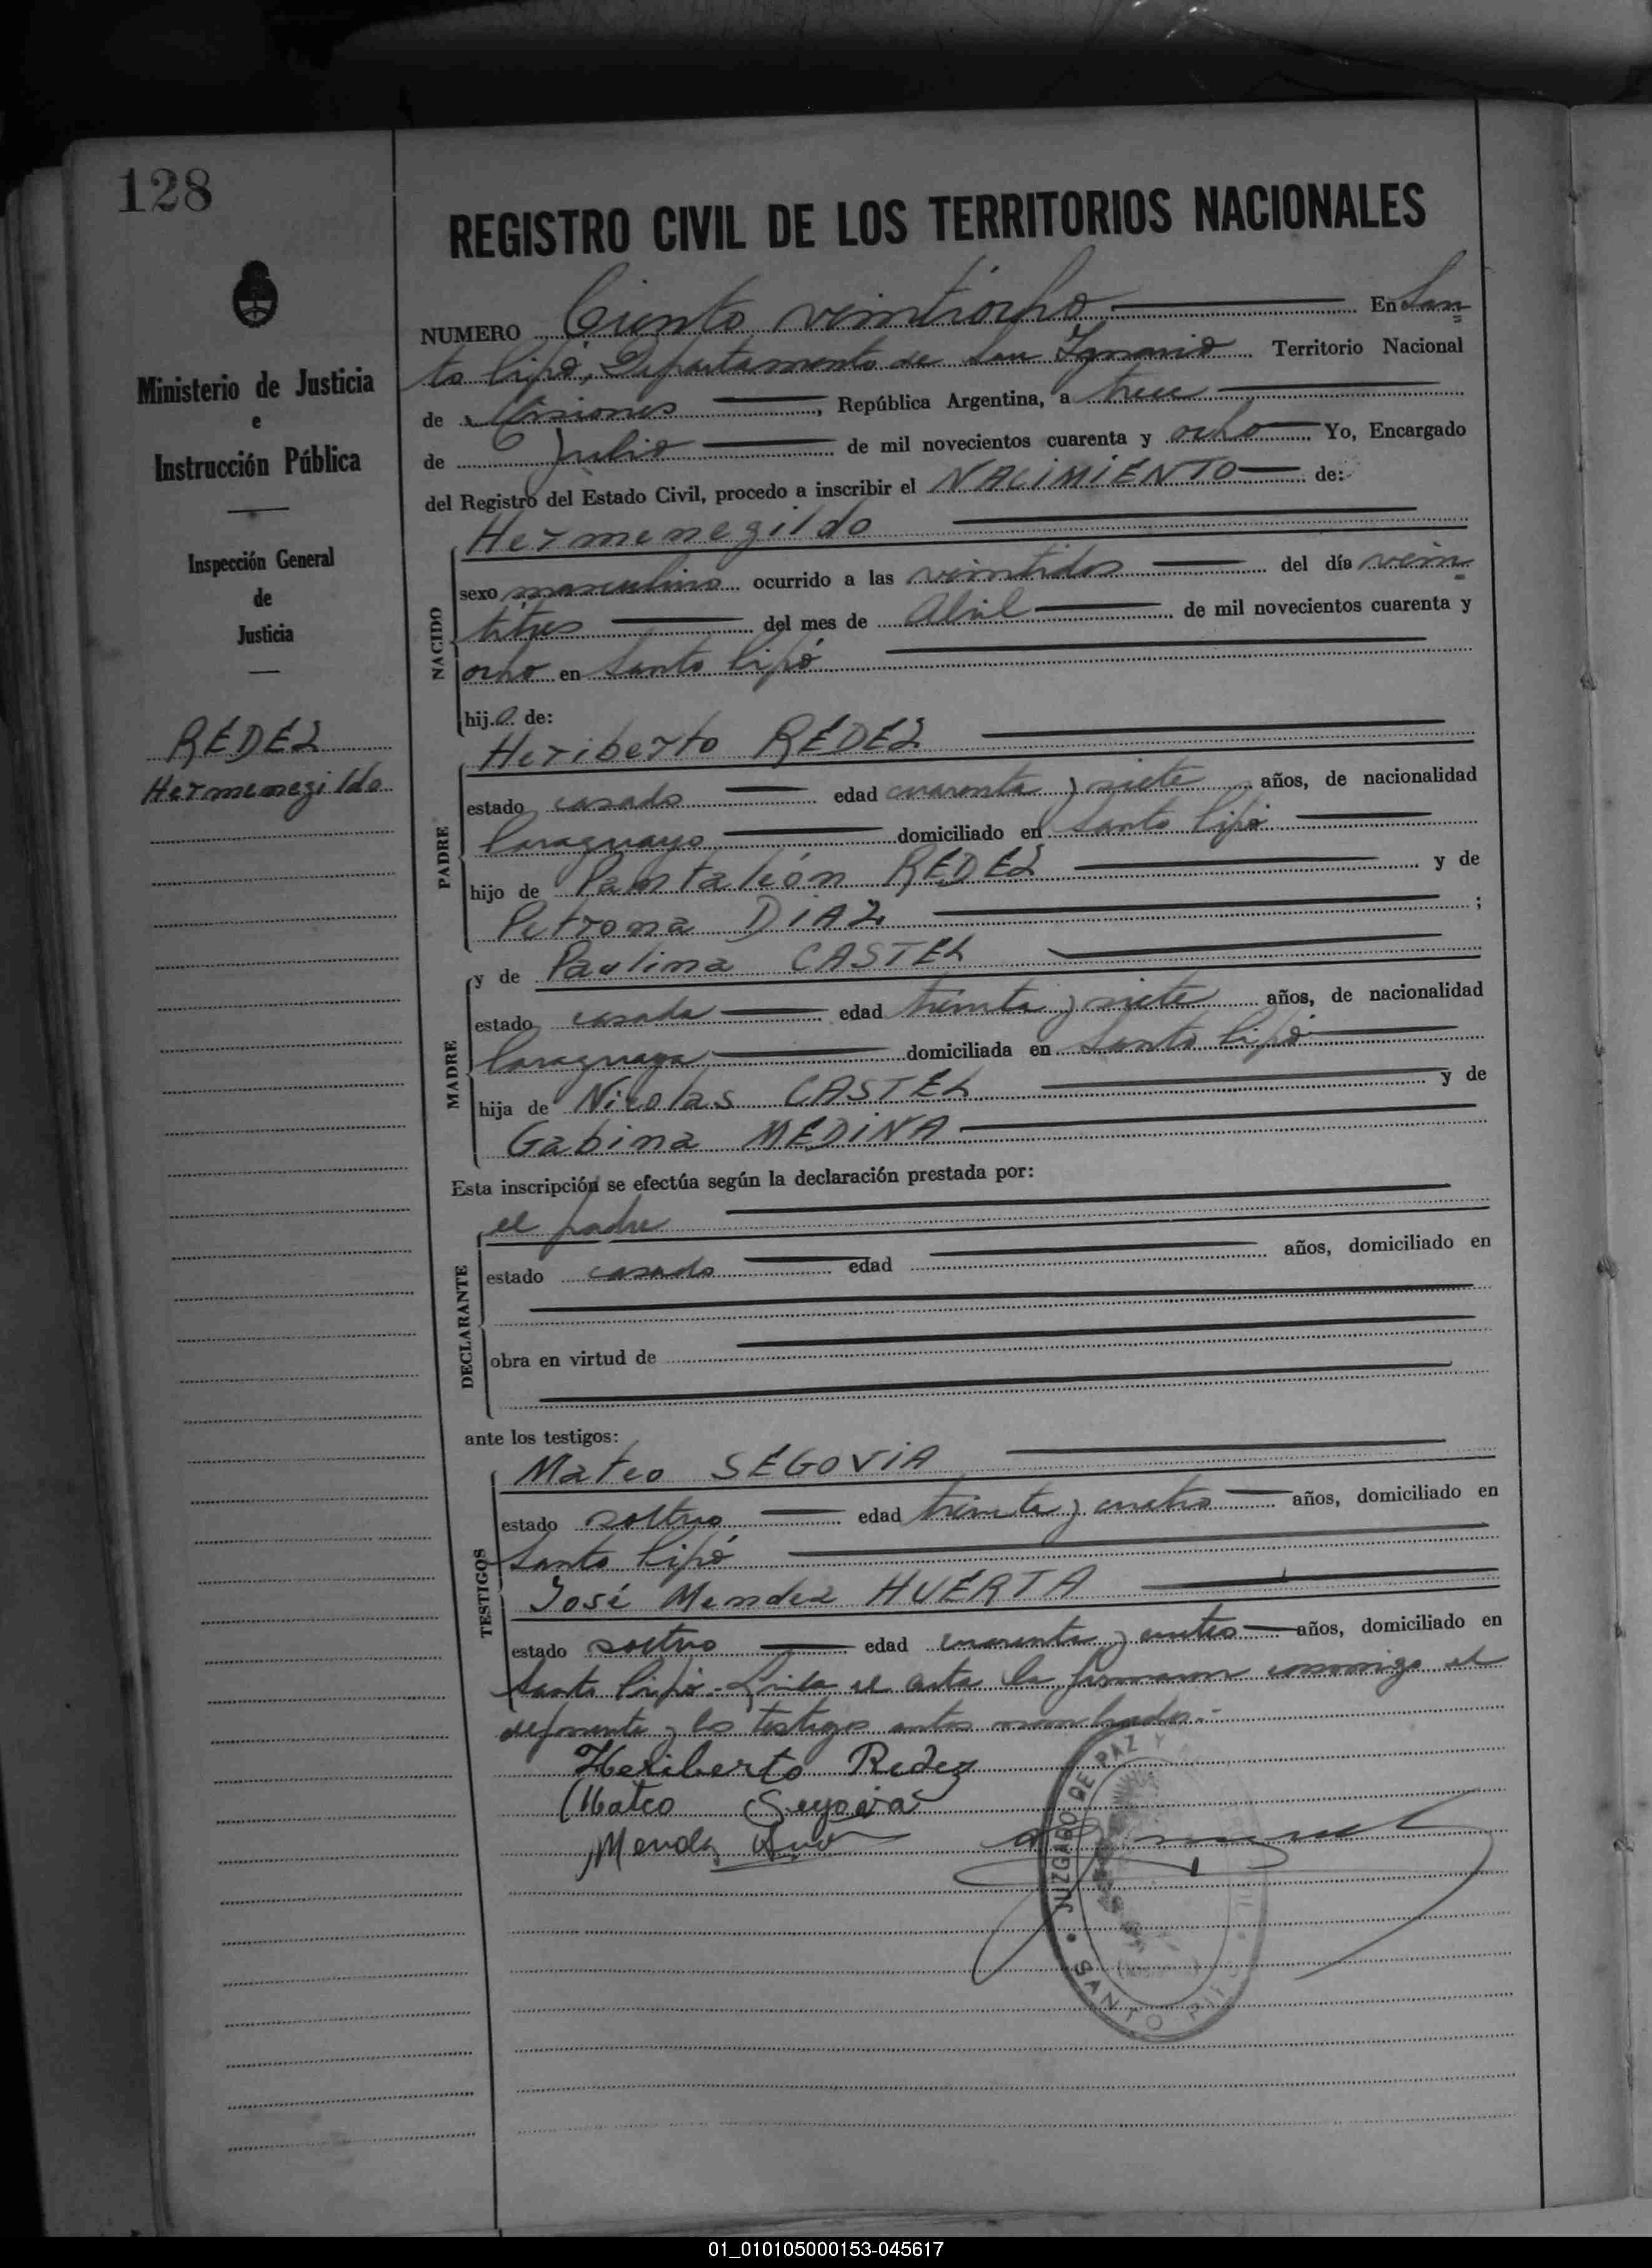 128
REGISTRO CIVIL DE LOS TERRITORIOS NACIONALES
Ministerio de Justicia
e
Instrucción Pública
Inspección General
de
Justicia
REDEZ
Hermenegildo
NUMERO Ciento veintiocho En San
to Pipó, Departamento de San Ignacio Territorio Nacional
de Misiones, República Argentina, a trece
de Julio de mil novecientos cuarenta y ocho Yo, Encargado
del Registro del Estado Civil, procedo a inscribir el NACIMIENTO de:
Hermenegildo
NACIDO
sexo masculino ocurrido a las veintidos del día vein
titres del mes de Abril de mil novecientos cuarenta y
ocho en Santo Pipó
hijo de:
Heriberto REDEZ
PADRE
estado casado edad cuarenta y siete años, de nacionalidad
Paraguayo domiciliado en Santo Pipó
hijo de Pantaleón REDEZ y de
Petrona DIAZ ;
y de Paulina CASTEL
MADRE
estado casada edad treinta y siete años, de nacionalidad
Paraguaya domiciliada en Santo Pipó
hija de Nicolas CASTEL y de
Gabina MEDINA
Esta inscripción se efectúa según la declaración prestada por:
el padre
DECLARANTE
estado casado edad años, domiciliado en
obra en virtud de
ante los testigos:
Mateo SEGOVIA
TESTIGOS
estado soltero edad treinta y cuatro años, domiciliado en
Santo Pipó
José Mendez HUERTA
estado soltero edad cuarenta y cuatro años, domiciliado en
Santo Pipó.- Leida el acta la firmaron conmigo el
deponente y los testigos antes nombrados.-
Heriberto Redez
Mateo Segovia
Mendez
JUZGADO DE PAZ Y
SANTO PIPO
01_010105000153-045617